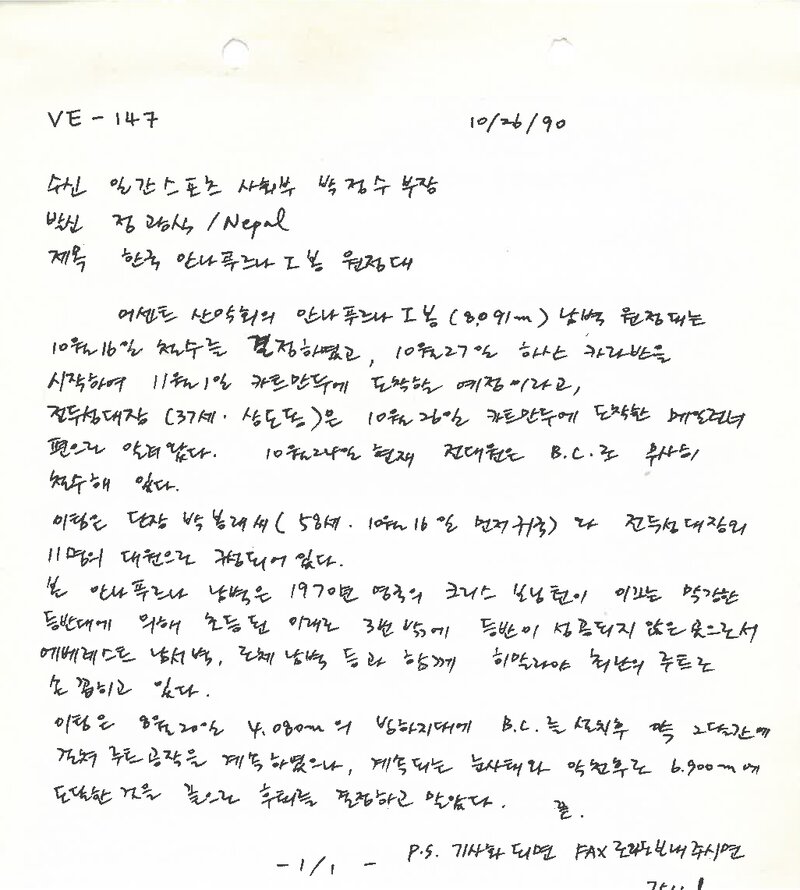 VE-147 10/26/90
수신 일간스포츠 사회부 박정수 부장
발신 정광식/Nepal
제목 한국 안나푸르나 I봉 원정대
어센트 산악회의 안나푸르나 I봉(8,091m) 남벽 원정대는
10월16일 철수를 결정하였고, 10월27일 하산 카라반을
시작하여 11월1일 카트만두에 도착할 예정이라고,
전두성대장(37세·상도동)은 10월26일 카트만두에 도착한 메일런너
편으로 알려왔다. 10월24일 현재 전대원은 B.C.로 무사히
철수해 있다.
이팀은 단장 박봉래씨(58세·10월16일 먼저귀국)와 전두성대장외
11명의 대원으로 구성되어 있다.
본 안나푸르나 남벽은 1970년 영국의 크리스 보닝턴이 이끄는 막강한
등반대에 의해 초등된 이래로 3번 밖에 등반이 성공되지 않은 곳으로서
에베레스트 남서벽, 로체 남벽 등과 함께 히말라야 최난의 루트로
손꼽히고 있다.
이팀은 8월20일 4,080m의 빙하지대에 B.C.를 설치후 약 2달간에
걸쳐 루트공작을 계속하였으나, 계속되는 눈사태와 악천후로 6,900m에
도달한 것을 끝으로 후퇴를 결정하고 말았다. 끝.
-1/1- P.S. 기사화 되면 FAX 보내주시면